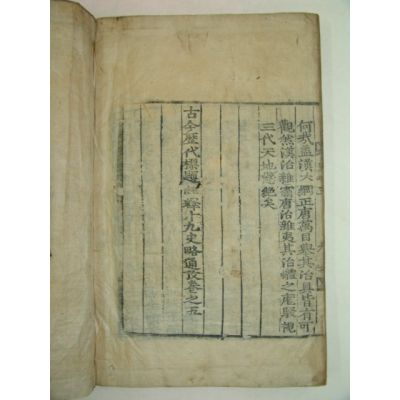 何哉盖漢大綱正唐萬目舉其治具皆有可
觀然漢治雜霸唐治雜夷其治體之龐駁視
三代天地懸絶矣
古今歷代標題註釋十九史略通攷卷之五